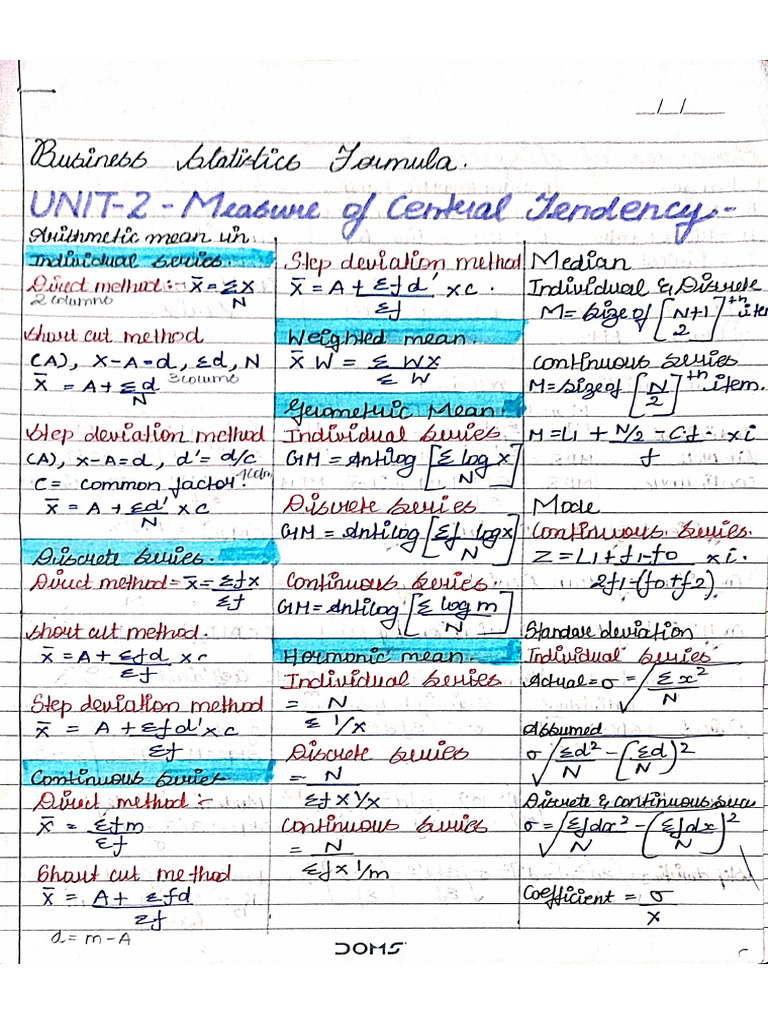 _/_/_
Business Statistics Formula.
UNIT-2 - Measure of Central Tendency.-
Arithmetic mean in
Individual series.
Direct method:- X̄ = Σx/N
2 columns
Short cut method
(A), X-A=d, Σd, N
X̄ = A + Σd/N 3 column
Step deviation method
(A), x-A=d, d' = d/c
C = common factor.
X̄ = A + Σd'/N × c
Discrete series.
Direct method = X̄ = Σfx/Σf
Short cut method.
X̄ = A + Σfd/Σf × c
Step deviation method
X̄ = A + Σfd'/Σf × c
Continuous series
Direct method :-
X̄ = Σfm/Σf
Short cut method
X̄ = A + Σfd/Σf
d = m - A
Step deviation method
X̄ = A + Σfd'/Σf × c .
Weighted mean.
X̄ W = Σ WX/Σ W
Geometric Mean.
Individual series.
GM = Antilog [Σ log x/N]
Discrete series
GM = Antilog [Σf logx/N]
Continuous series.
GM = Antilog [Σ log m/N]
Hormonic mean.
Individual series
= N/Σ 1/x
Discrete series
= N/Σf x 1/x
Continuous series
= N/Σf x 1/m
Median
Individual & Discrete
M = size of [N+1/2]th item
Continuous series
M = size of [N/2]th item.
M = L1 + N/2 - Cf./f × i
Mode
Continuous. series.
Z = L1 + f1-f0/2f1-(f0+f2) × i.
Standare deviation
Individual series
Actual = σ = √Σx²/N
Assumed
σ √Σd²/N - (Σd/N)²
Discrete & continuous series
σ = √Σfdx²/N - (Σfdx/N)²
Coefficient = σ/x
DOMS